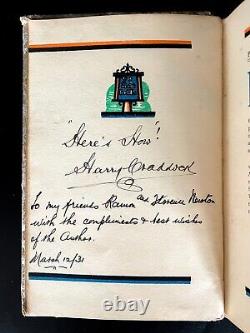 "Here's How"!
Harry Craddock
To my friends Ramon and Florence Newton
with the compliments & best wishes
of the Author.
March 12/31